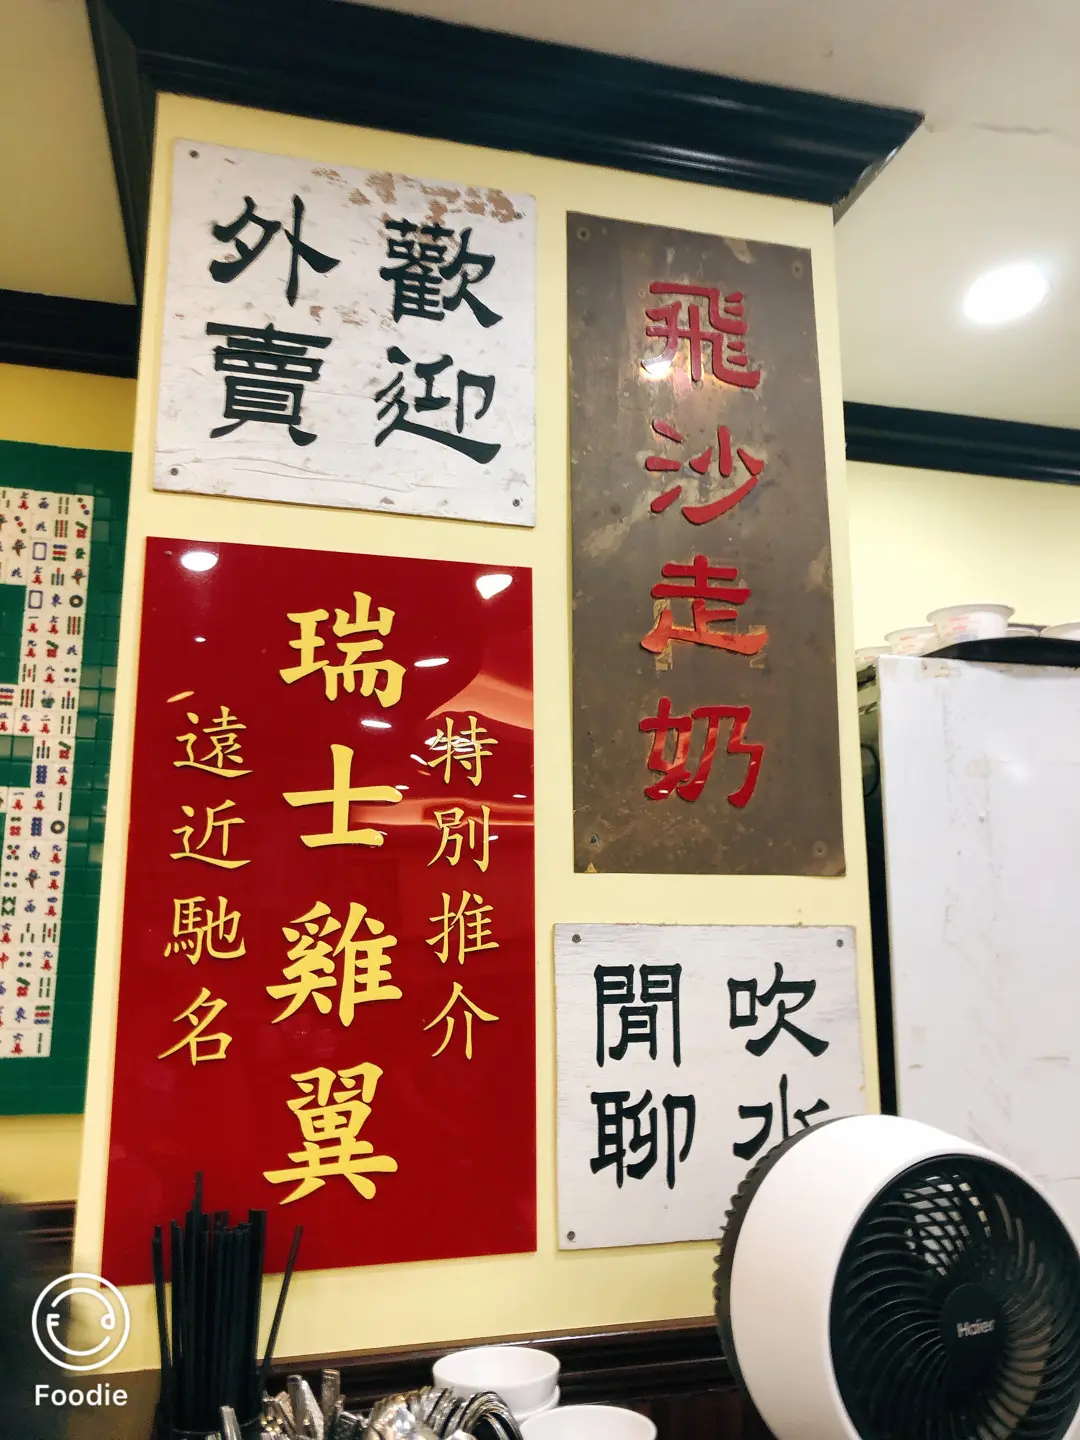 歡迎
外賣
飛沙走奶
特別推介
瑞士雞翼
遠近馳名
吹水
閒聊
Haier
Foodie